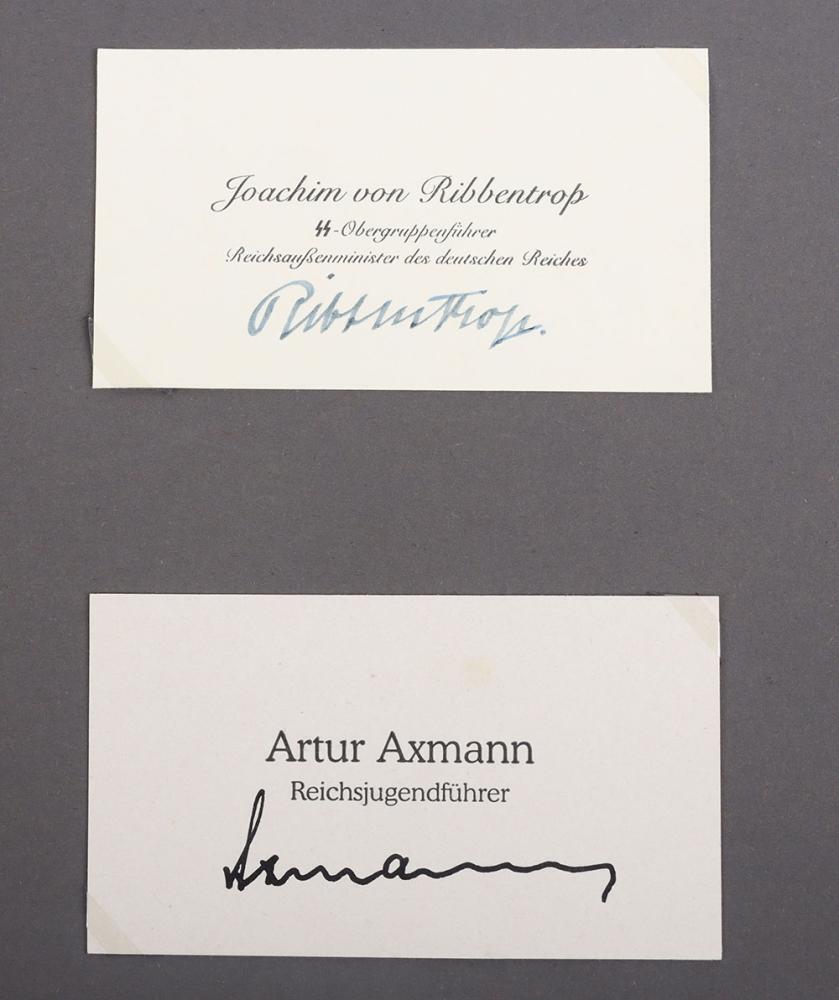 Joachim von Ribbentrop
SS-Obergruppenführer
Reichsaußenminister des deutschen Reiches
Ribbentrop.
Artur Axmann
Reichsjugendführer
Axmann